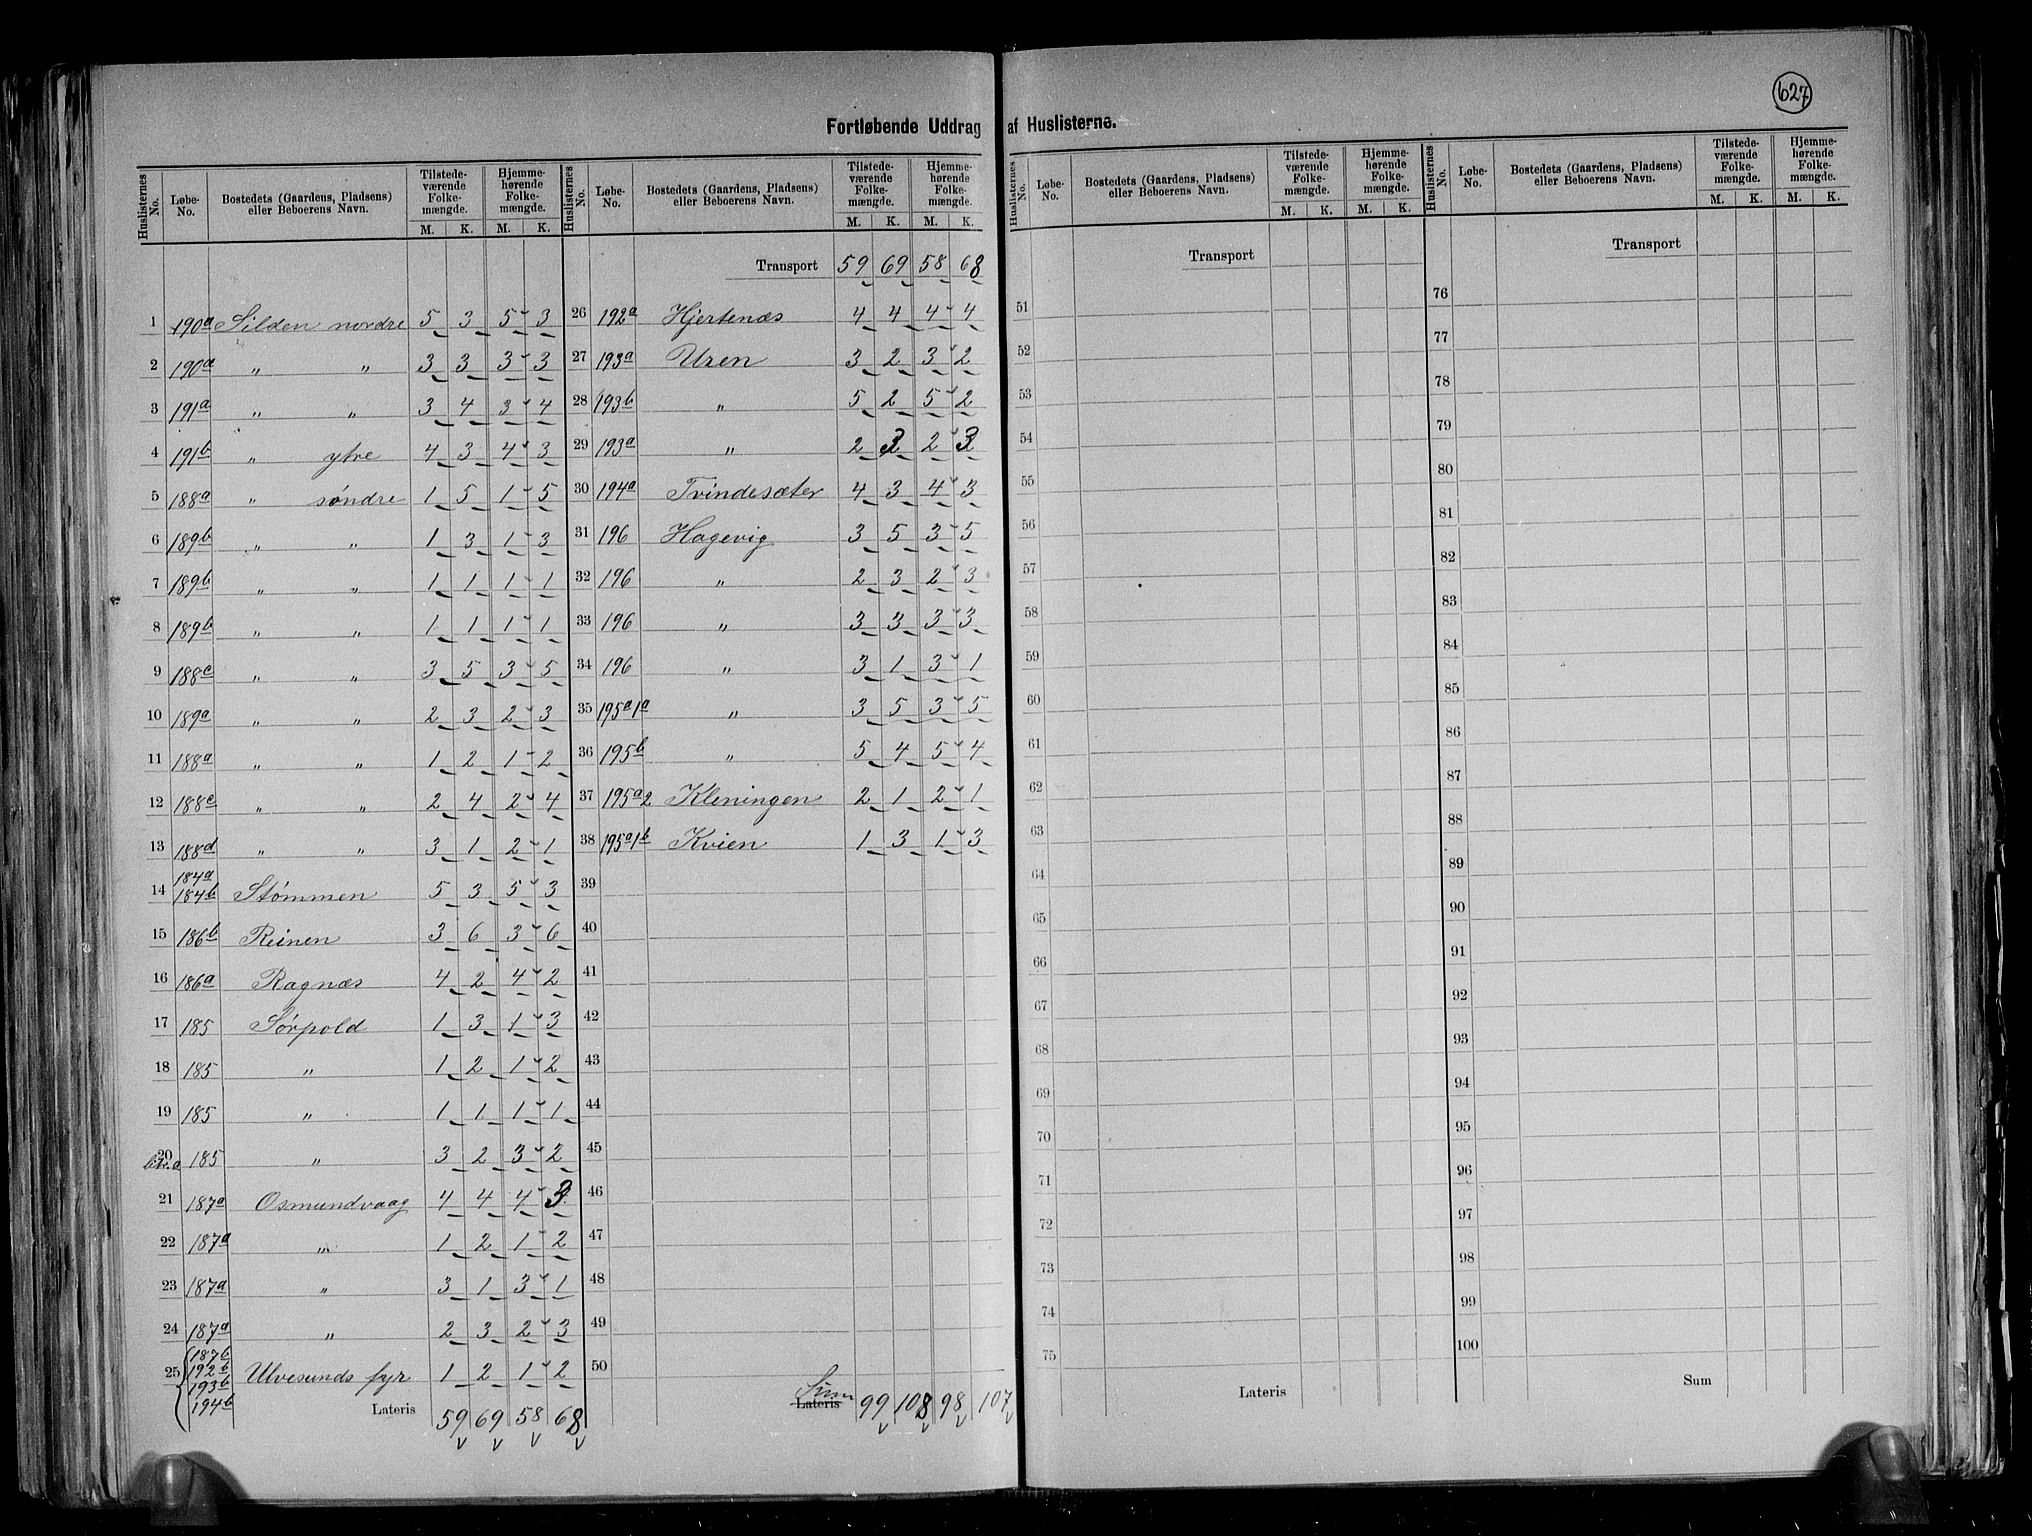 627
Fortløbende Uddrag af Huslisterne.
Huslisternes No. Løbe-No. Bostedets (Gaardens, Pladsens) eller Beboerens Navn. Tilstedeværende Folkemængde. M. K. Hjemmehørende Folkemængde. M. K.
1 190a Silden nordre 5 3 5 3
2 190a " " 3 3 3 3
3 191a " " 3 4 3 4
4 191b " ytre 4 3 4 3
5 188a " søndre 1 5 1 5
6 189b " " 1 3 1 3
7 189b " " 1 1 1 1
8 189b " " 1 1 1 1
9 188c " " 3 5 3 5
10 189a " " 2 3 2 3
11 188a " " 1 2 1 2
12 188c " " 2 4 2 4
13 188d " " 3 1 2 1
14 184a 184b Stømmen 5 3 5 3
15 186b Reinen 3 6 3 6
16 186a Ragnæs 4 2 4 2
17 185 Sørpold 1 3 1 3
18 185 " 1 2 1 2
19 185 " 1 1 1 1
20 185 " 3 2 3 2
21 187a Osmundvaag 4 4 4 3
22 187a " 1 2 1 2
23 187a " 3 1 3 1
24 187a " 2 3 2 3
25 187b 192b 193b 194b Ulvesunds fyr 1 2 1 2
Lateris 59 69 58 68
Huslisternes No. Løbe-No. Bostedets (Gaardens, Pladsens) eller Beboerens Navn. Tilstedeværende Folkemængde. M. K. Hjemmehørende Folkemængde. M. K.
Transport 59 69 58 68
26 192a Hjertenæs 4 4 4 4
27 193a Uren 3 2 3 2
28 193b " 5 2 5 2
29 193a " 2 3 2 3
30 194a Tvindesæter 4 3 4 3
31 196 Hagevig 3 5 3 5
32 196 " 2 3 2 3
33 196 " 3 3 3 3
34 196 " 3 1 3 1
35 195a1a " 3 5 3 5
36 195b " 5 4 5 4
37 195a2 Kleningen 2 1 2 1
38 195a1b Kvien 1 3 1 3
39
40
41
42
43
44
45
46
47
48
49
50
Sum Lateris 99 108 98 107
Huslisternes No. Løbe-No. Bostedets (Gaardens, Pladsens) eller Beboerens Navn. Tilstedeværende Folkemængde. M. K. Hjemmehørende Folkemængde. M. K.
Transport
51
52
53
54
55
56
57
58
59
60
61
62
63
64
65
66
67
68
69
70
71
72
73
74
75
Lateris
Huslisternes No. Løbe-No. Bostedets (Gaardens, Pladsens) eller Beboerens Navn. Tilstedeværende Folkemængde. M. K. Hjemmehørende Folkemængde. M. K.
Transport
76
77
78
79
80
81
82
83
84
85
86
87
88
89
90
91
92
93
94
95
96
97
98
99
100
Sum